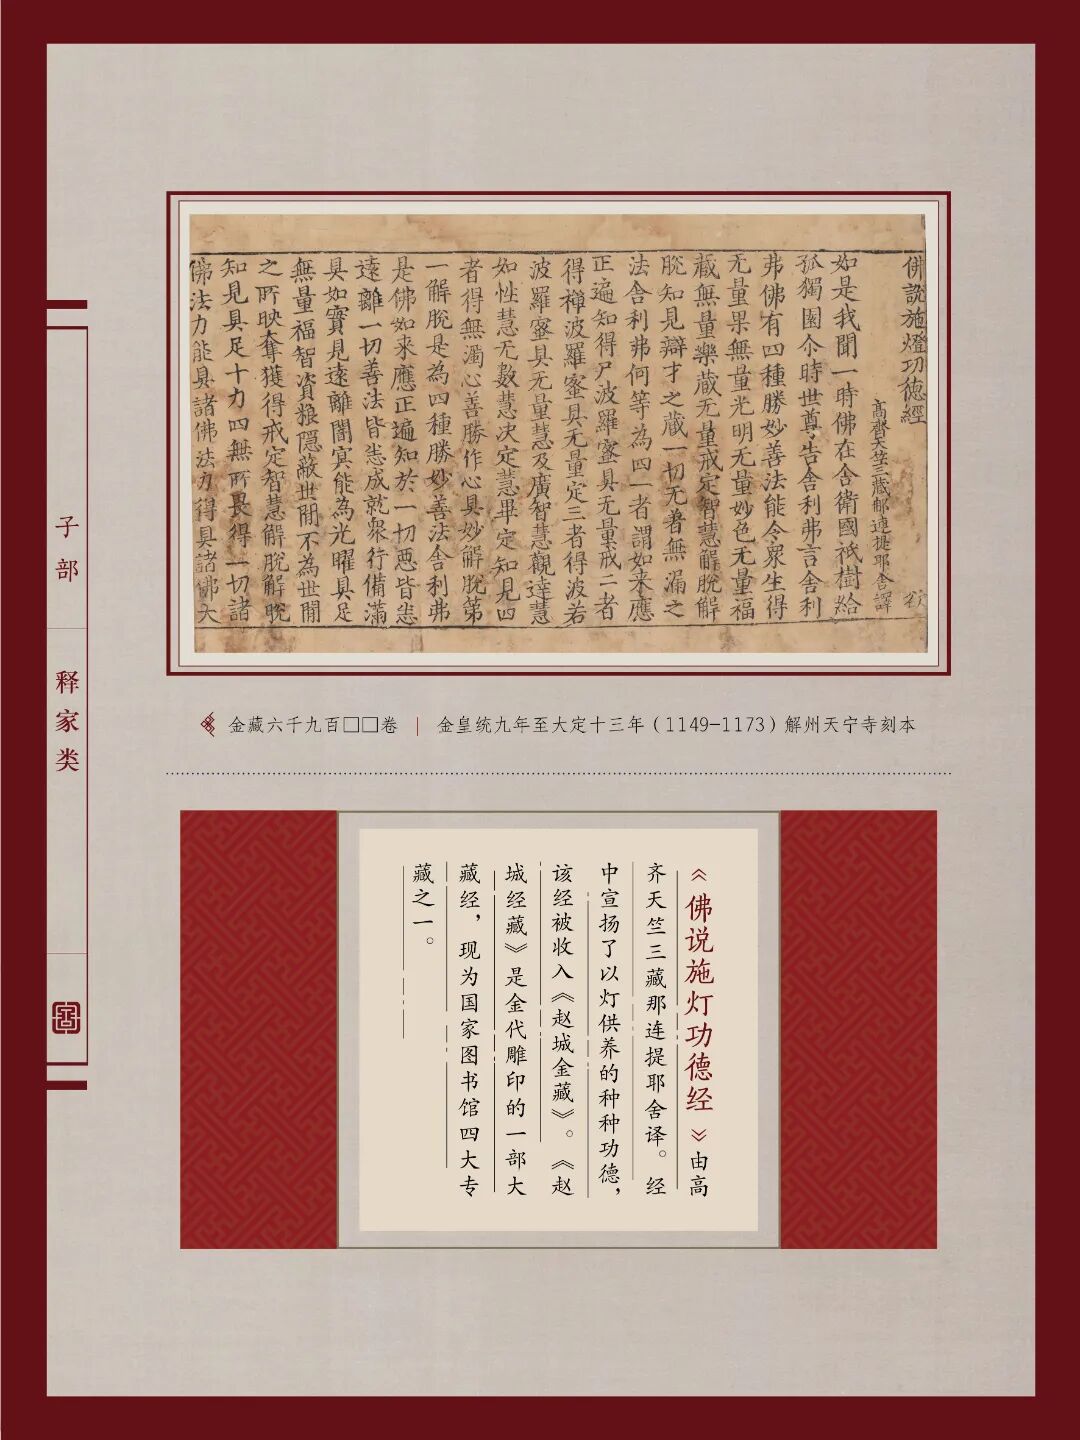 子部
释家类
佛說施燈功德經
高齊天竺三藏郍連提耶舍譯
如是我聞一時佛在舍衛國祇樹給
孤獨園尒時世尊告舍利弗言舍利
弗佛有四種勝妙善法能令衆生得
无量果無量光明无量妙色无量福
藏無量樂藏无量戒定智慧解脫解
脫知見辯才之藏一切无着無漏之
法舍利弗何等為四一者謂如来應
正遍知得尸波羅蜜具无量戒二者
得禪波羅蜜具无量定三者得波若
波羅蜜具无量慧及廣智慧觀達慧
如性慧无數慧决定慧畢定知見四
者得無濁心善勝作心具妙解脫第
一解脫是為四種勝妙善法舍利弗
是佛如来應正遍知於一切悪皆悉
遠離一切善法皆悉成就衆行備滿
具如實見遠離闇冥能為光曜具足
無量福智資粮隱蔽世間不為世間
之所映奪獲得戒定智慧解脫解脫
知見具足十力四無所畏得一切諸
佛法力能具諸佛法力得具諸佛大
金藏六千九百□□卷 | 金皇统九年至大定十三年（1149-1173）解州天宁寺刻本
《佛说施灯功德经》由高
齐天竺三藏那连提耶舍译。经
中宣扬了以灯供养的种种功德，
该经被收入《赵城金藏》。《赵
城经藏》是金代雕印的一部大
藏经，现为国家图书馆四大专
藏之一。